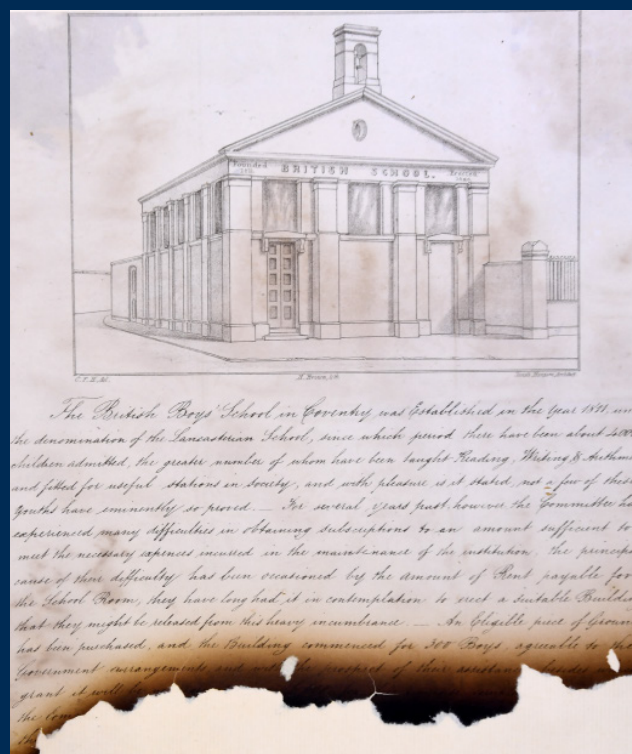 Founded
BRITISH SCHOOL.
Erected
The British Boys' School in Coventry was Established in the Year 1811, un
the denomination of the Lancasterian School, since which period there have been about 4000
children admitted, the greater number of whom have been taught Reading, Writing & Arithme
and fitted for useful stations in Society, and with pleasure is it stated, not a few of these
Youths have eminently so proved. For several years past, however, the Committee ha
experienced many difficulties in obtaining subscriptions to an amount sufficient to
meet the necessary expences incurred in the maintenance of the institution, the princip
cause of their difficulty has been occasioned by the amount of Rent payable for
the School Room, they have long had it in contemplation to erect a Suitable Building
that they might be released from this heavy incumbrance — An Eligible piece of Groun
has been purchased, and the Building commenced for 300 Boys, agreeable to the
Government arrangements and with the prospect of their assistance, besides
grant it will be
the Com